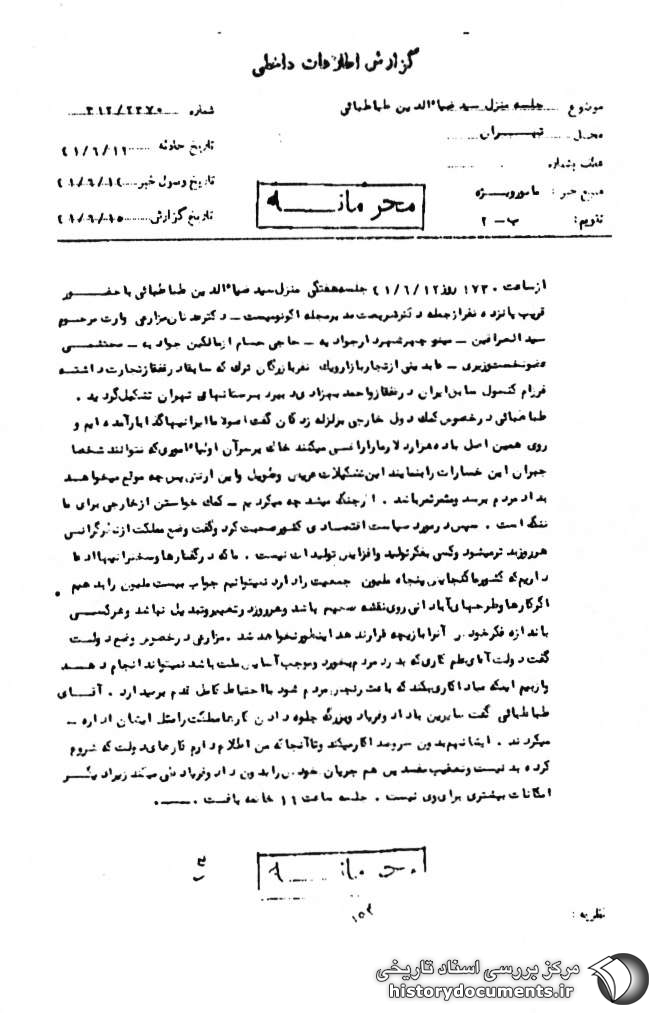 گزارش اطلاعات داخلی
موضوع جلسه منزل سید ضیاءالدین طباطبائی
شماره ۳۱۲/۲۲۷۰
محل تهران
تاریخ حادثه ۴۱/۶/۱۲
عطف بشماره
تاریخ وصول خبر ۴۱/۶/۱۴
منبع خبر : مامور ویژه
محرمانه
تاریخ گزارش ۴۱/۶/۱۵
تقویم : ب - ۲
از ساعت ۱۷۳۰ روز ۴۱/۶/۱۲ جلسه هفتگی منزل سید ضیاءالدین طباطبائی با حضور
قریب پانزده نفر از جمله دکتر شریعت مدیر مجله اکونومیست - دکتر عدنان مزارعی وارث مرحوم
سید العراقین - مینو چهر شهردار جوادیه - حاجی حسام از مالکین جوادیه - محتشمی
عضو نخست‌وزیری - عابدینی از تجار بازار و یک نفر بازرگان ترک که سابقا در قفقاز تجارت داشته
فرزام کنسول سابق ایران در قفقاز و احمد بهزادی دبیر دبیرستانهای تهران تشکیل گردید .
طباطبائی در خصوص کمک دول خارجی بزلزله زدگان گفت اصولا ما ایرانیها گدا بار آمده ایم و
روی همین اصل با ده هزار دلار ما را راضی میکنند خاک بر سر آن اولیاء اموری که نتوانند شخصا
جبران این خسارات را بنمایند این تشکیلات عریض و طویل و این ارتش پس چه موقع میخواهد
بداد مردم برسد و مثمر ثمر باشد . اگر جنگ میشد چه میکردیم - کمک خواستن از خارجی برای ما
ننگ است . سپس در مورد سیاست اقتصادی کشور صحبت کرد و گفت وضع مملکت از نظر گرانی
هر روز بدتر میشود و کسی بفکر تولید و افزایش تولیدات نیست . ما که در گفتارها و سخنرانیها ادعا
داریم که کشور ما گنجایش پنجاه ملیون جمعیت را دارد نمیتوانیم جواب بیست ملیون را بدهیم
اگر کارها و طرحهای آبادانی روی نقشه صحیح باشد و هر روز در تغییر و تبدیل نباشد و هر کسی
باندازه فکر خود آنرا بازیچه قرار ندهد اینطور نخواهد شد . مزارعی در خصوص وضع دولت
گفت دولت آقای علم کاری که بدرد مردم بخورد و موجب آسایش ملت باشد نمیتواند انجام دهد
و از بیم اینکه مبادا کاری بکند که باعث رنجش مردم شود با احتیاط کامل قدم برمیدارد . آقای
طباطبائی گفت سایرین با داد و فریاد و بزرگ جلوه دادن کارها مملکت را مثل ایشان اداره -
میکردند . ایشان هم بدون سر و صدا کار میکند و تا آنجا که من اطلاع دارم کارهای دولت که شروع
کرده بد نیست و تعقیب مفسدین هم جریان خودش را بدون داد و فریاد طی میکند زیرا دیگر
امکانات بیشتری برای وی نیست . جلسه ساعت ۱۹ خاتمه یافت .
محرمانه
نظریه :
۱۵۳
مرکز بررسی اسناد تاریخی
historydocuments.ir